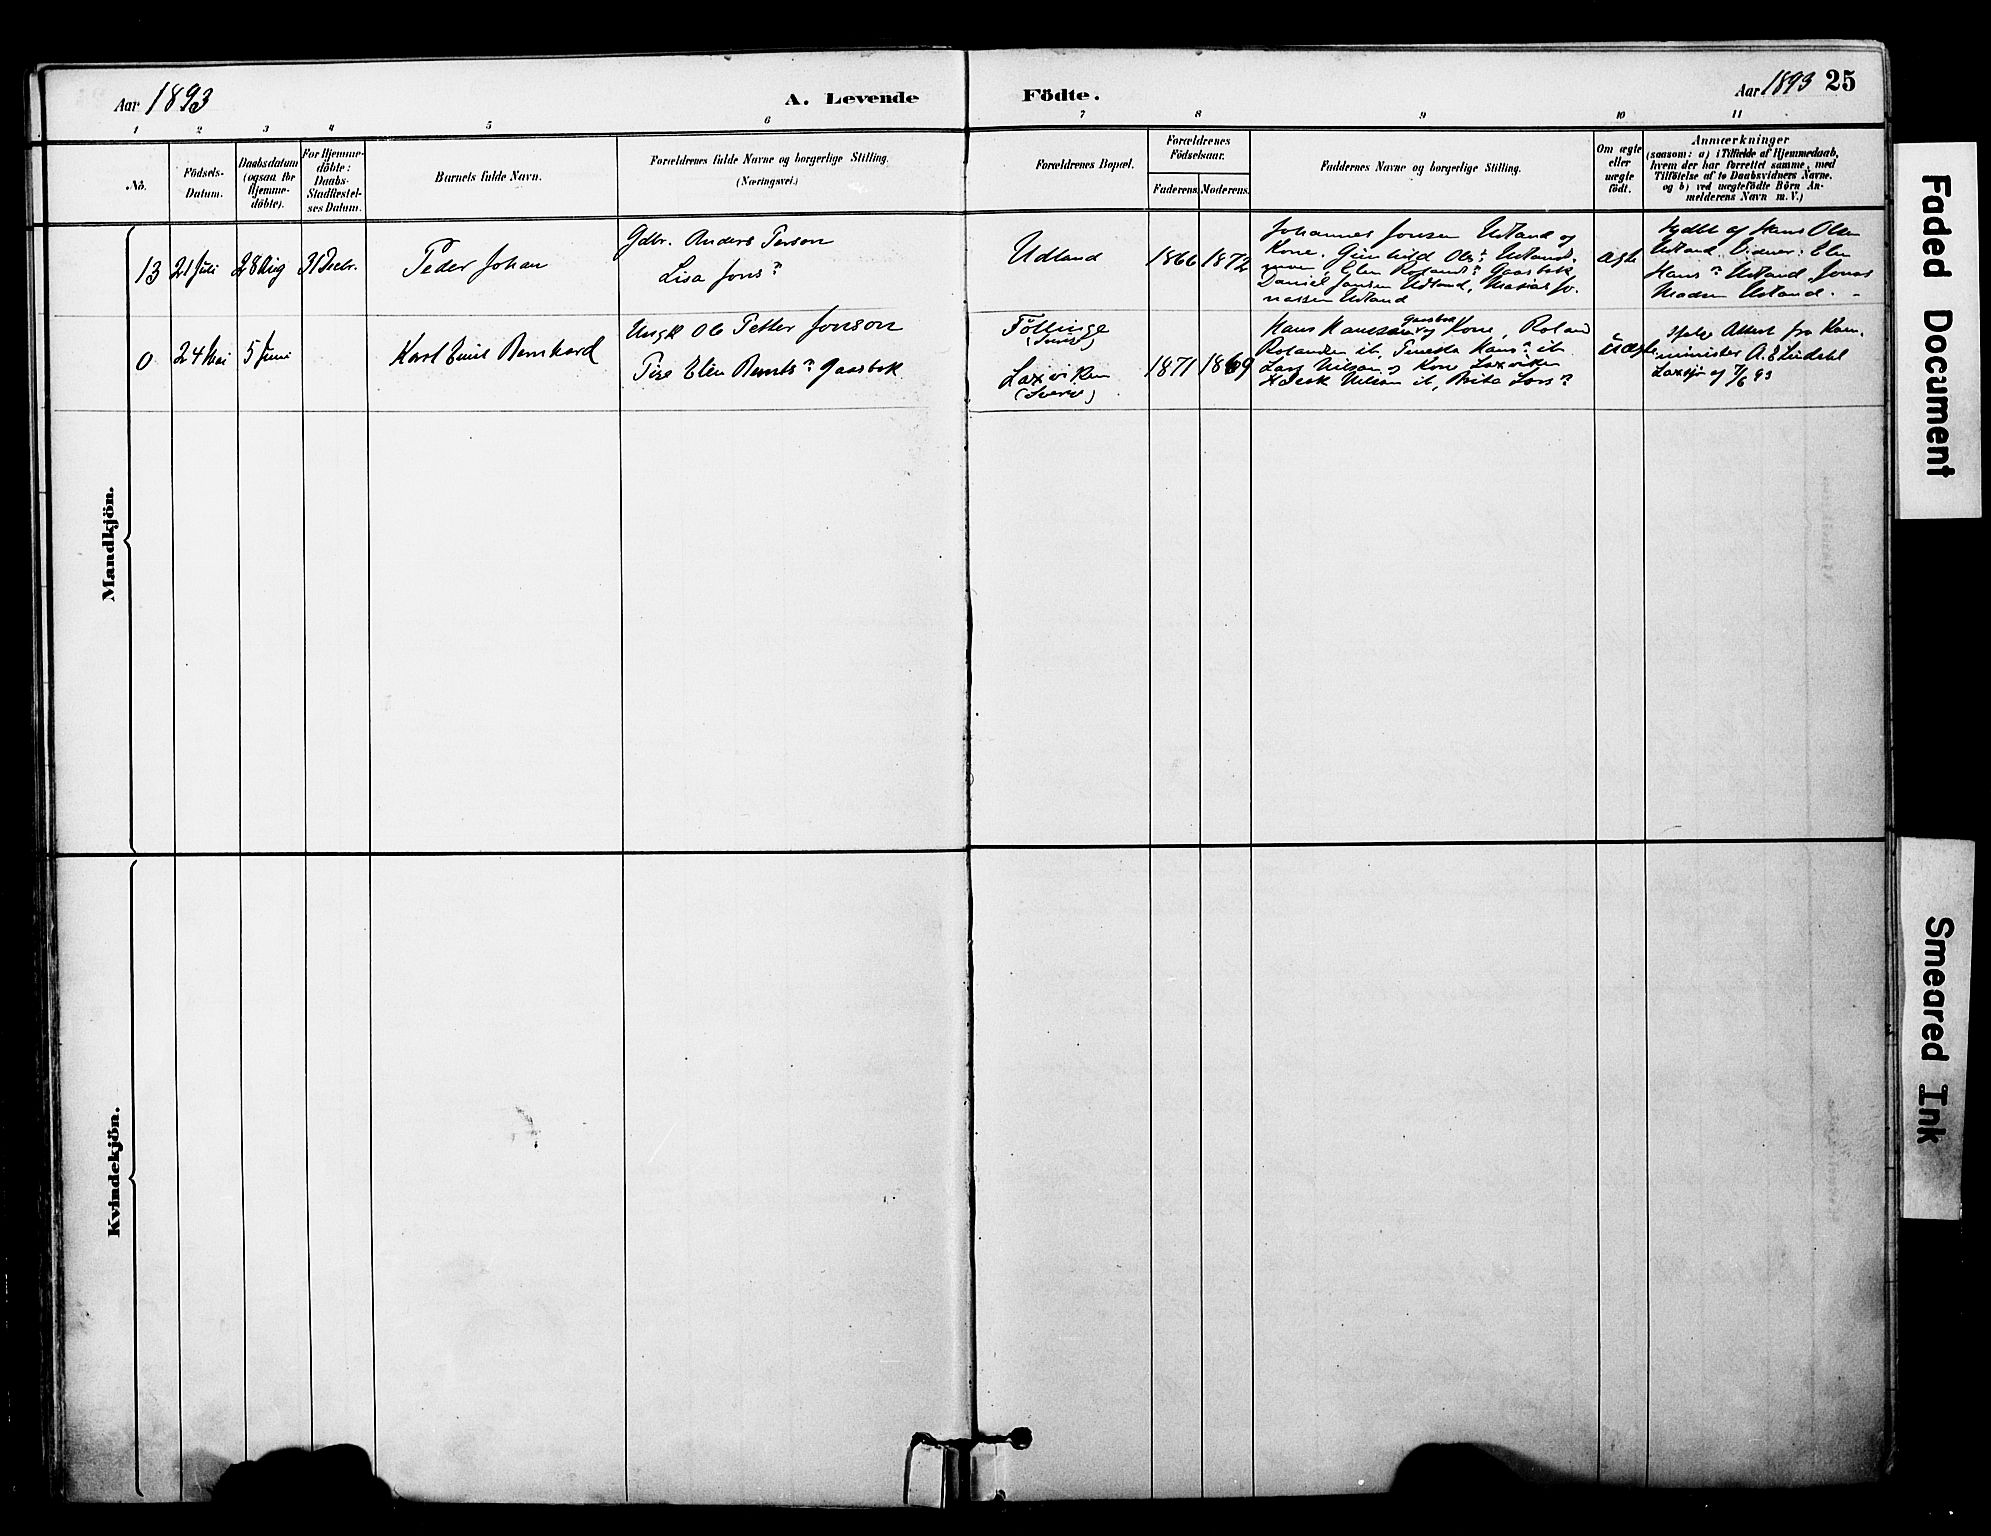 Aar 1893
A. Levende
Födte.
Aar 1893 25
1 2 3 4 5 6 7 8 9 10 11
No.
Födsels-
Datum.
Daabsdatum
(ogsaa for
Hjemme-
döbte).
For Hjemme-
döbte:
Daabs-
Stadfæstel-
ses Datum.
Barnets fulde Navn.
Forældrenes fulde Navne og borgerlige Stilling.
(Næringsvei.)
Forældrenes Bopæl.
Forældrenes
Födselsaar.
Faderens. Moderens.
Faddernes Navne og borgerlige Stilling.
Om ægte
eller
uægte
födt.
Anmærkninger
(saasom: a) i Tilfælde af Hjemmedaab,
hvem der har forrettet samme, med
Tilföielse af to Daabsvidners Navne,
og b) ved uægtefödte Börn An-
melderens Navn m. V.)
Mandkjön.
13 21 Juli 28 Aug 31 Decbr.
Peder Johan
Gdbr. Anders Person
Lisa Jonsn
Udland
1866 1872
Johannes Jonsen Udland og
Kone, Gunhild Olsn
Daniel Jonsen Udland, Matias Jo-
nassen Udland
ægte
Hans Olsen
Udland. Vidner: Elen
Hansn Udland, Jonas
Madsen Udland. -
0 24 Mai 5 Juni
Karl Emil Bernhard
Ungk Ole Petter Jonson
Pige Elen Berntsn Gaasbak
Föllinge
Laxviken
(Sverig)
1871 1869
Gaasbak
Hans Hansen og Kone, Roland
Hansn ib
Lars Nilson og Kone Laxviken
Nilson ib, Brita Larsn
uægte
ifølge Attest fra Kom-
minister A. E Lindahl
Laxsjö af 7/6 93
Kvindekjön.
Faded Document
Smeared Ink